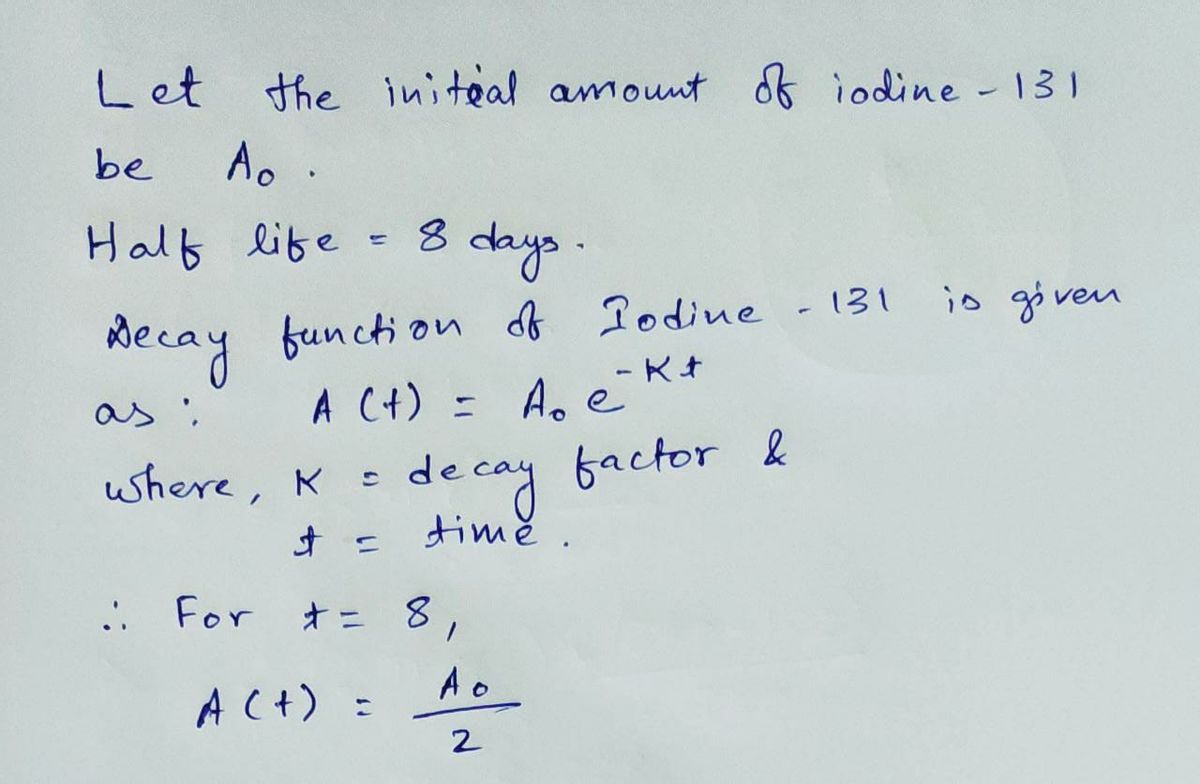 Let the initial amount of iodine - 131
be A₀ .
Half life = 8 days .
Decay function of Iodine - 131 is given
as : A (t) = A₀ e^-Kt
where, K = decay factor &
t = time .
∴ For t = 8 ,
A (t) = A₀/2